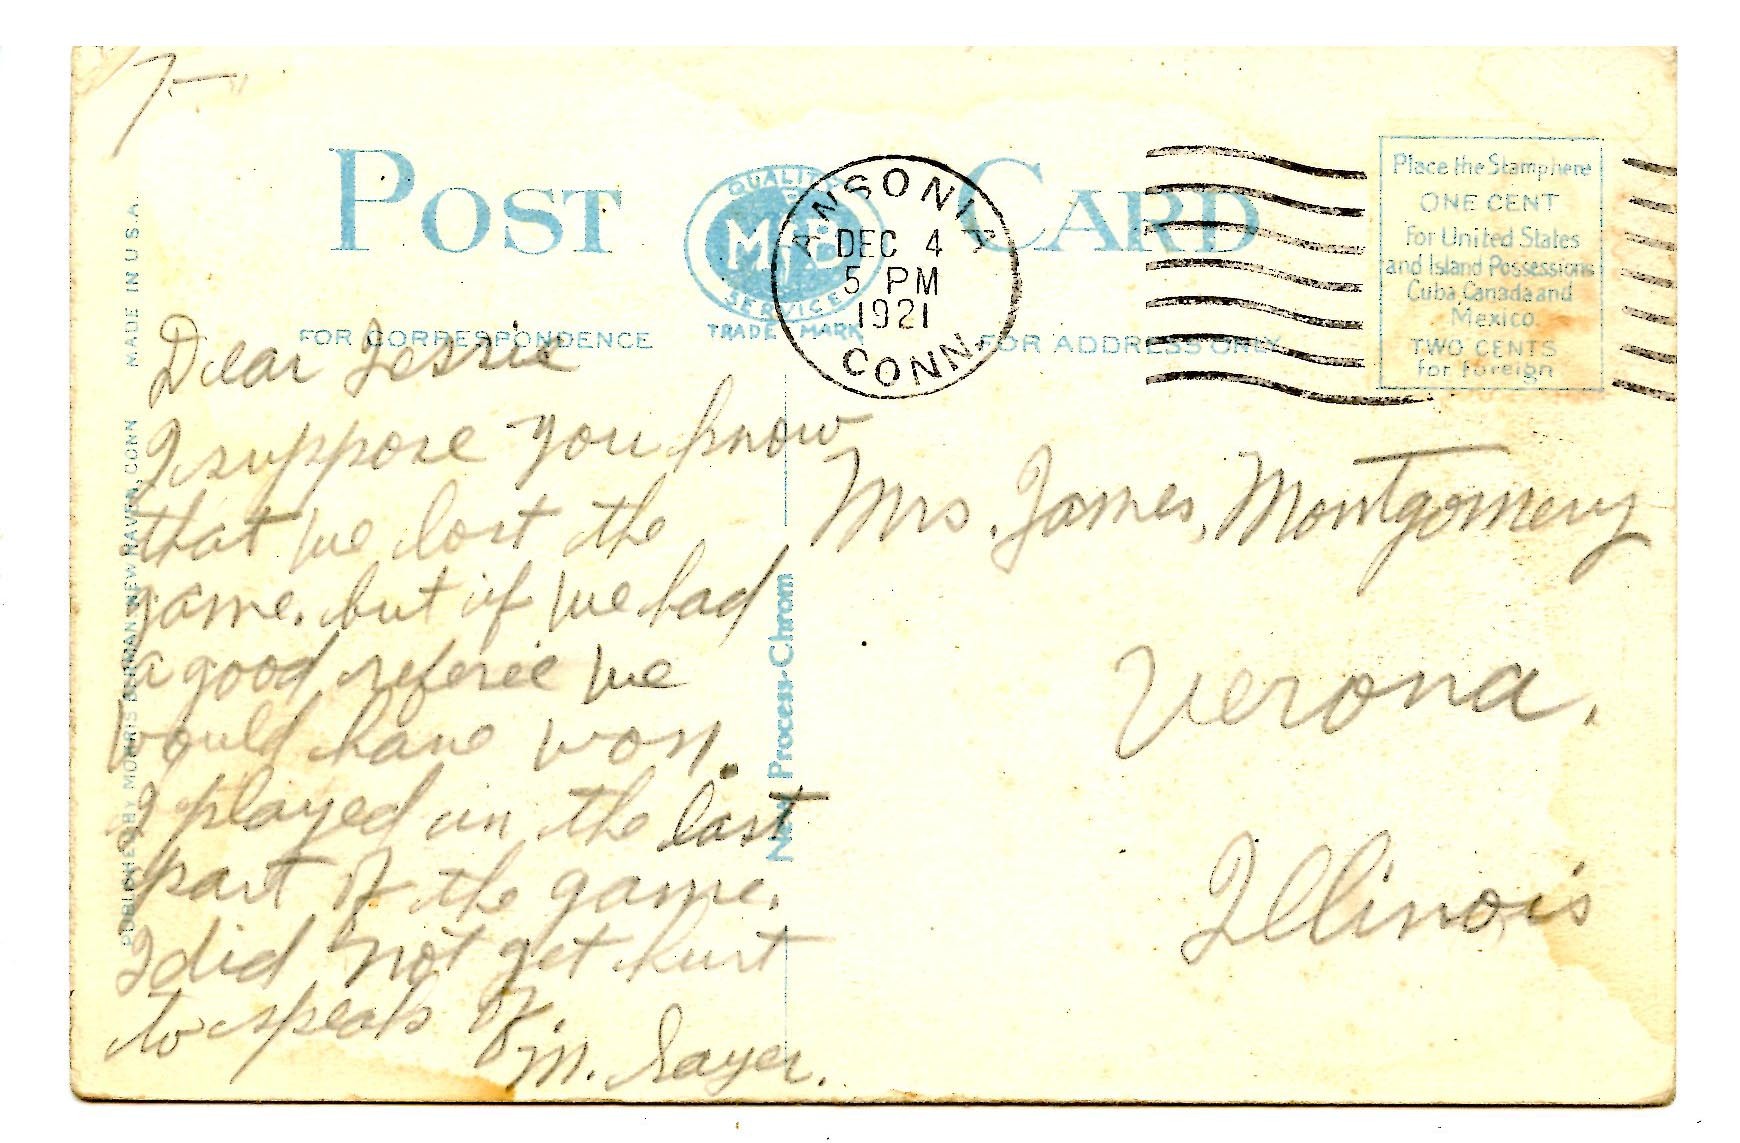 7.—
POST CARD
QUALITY
MB
SERVICE
TRADE MARK
ANSONIA
DEC 4
5 PM
1921
CONN.
Place the Stamp here
ONE CENT
For United States
and Island Possessions
Cuba, Canada and
Mexico
TWO CENTS
for Foreign
FOR CORRESPONDENCE
FOR ADDRESS ONLY
PUBLISHED BY MORRIS BERMAN, NEW HAVEN, CONN MADE IN U.S.A.
New Process-Chrom
Dear Jessie
I suppose you know
that we lost the
game. but if we had
a good referee we
would have won.
I played in the last
part of the game.
I did not get hurt
to speak of.
M. Sayer.
Mrs. James, Montgomery
Verona.
Illinois